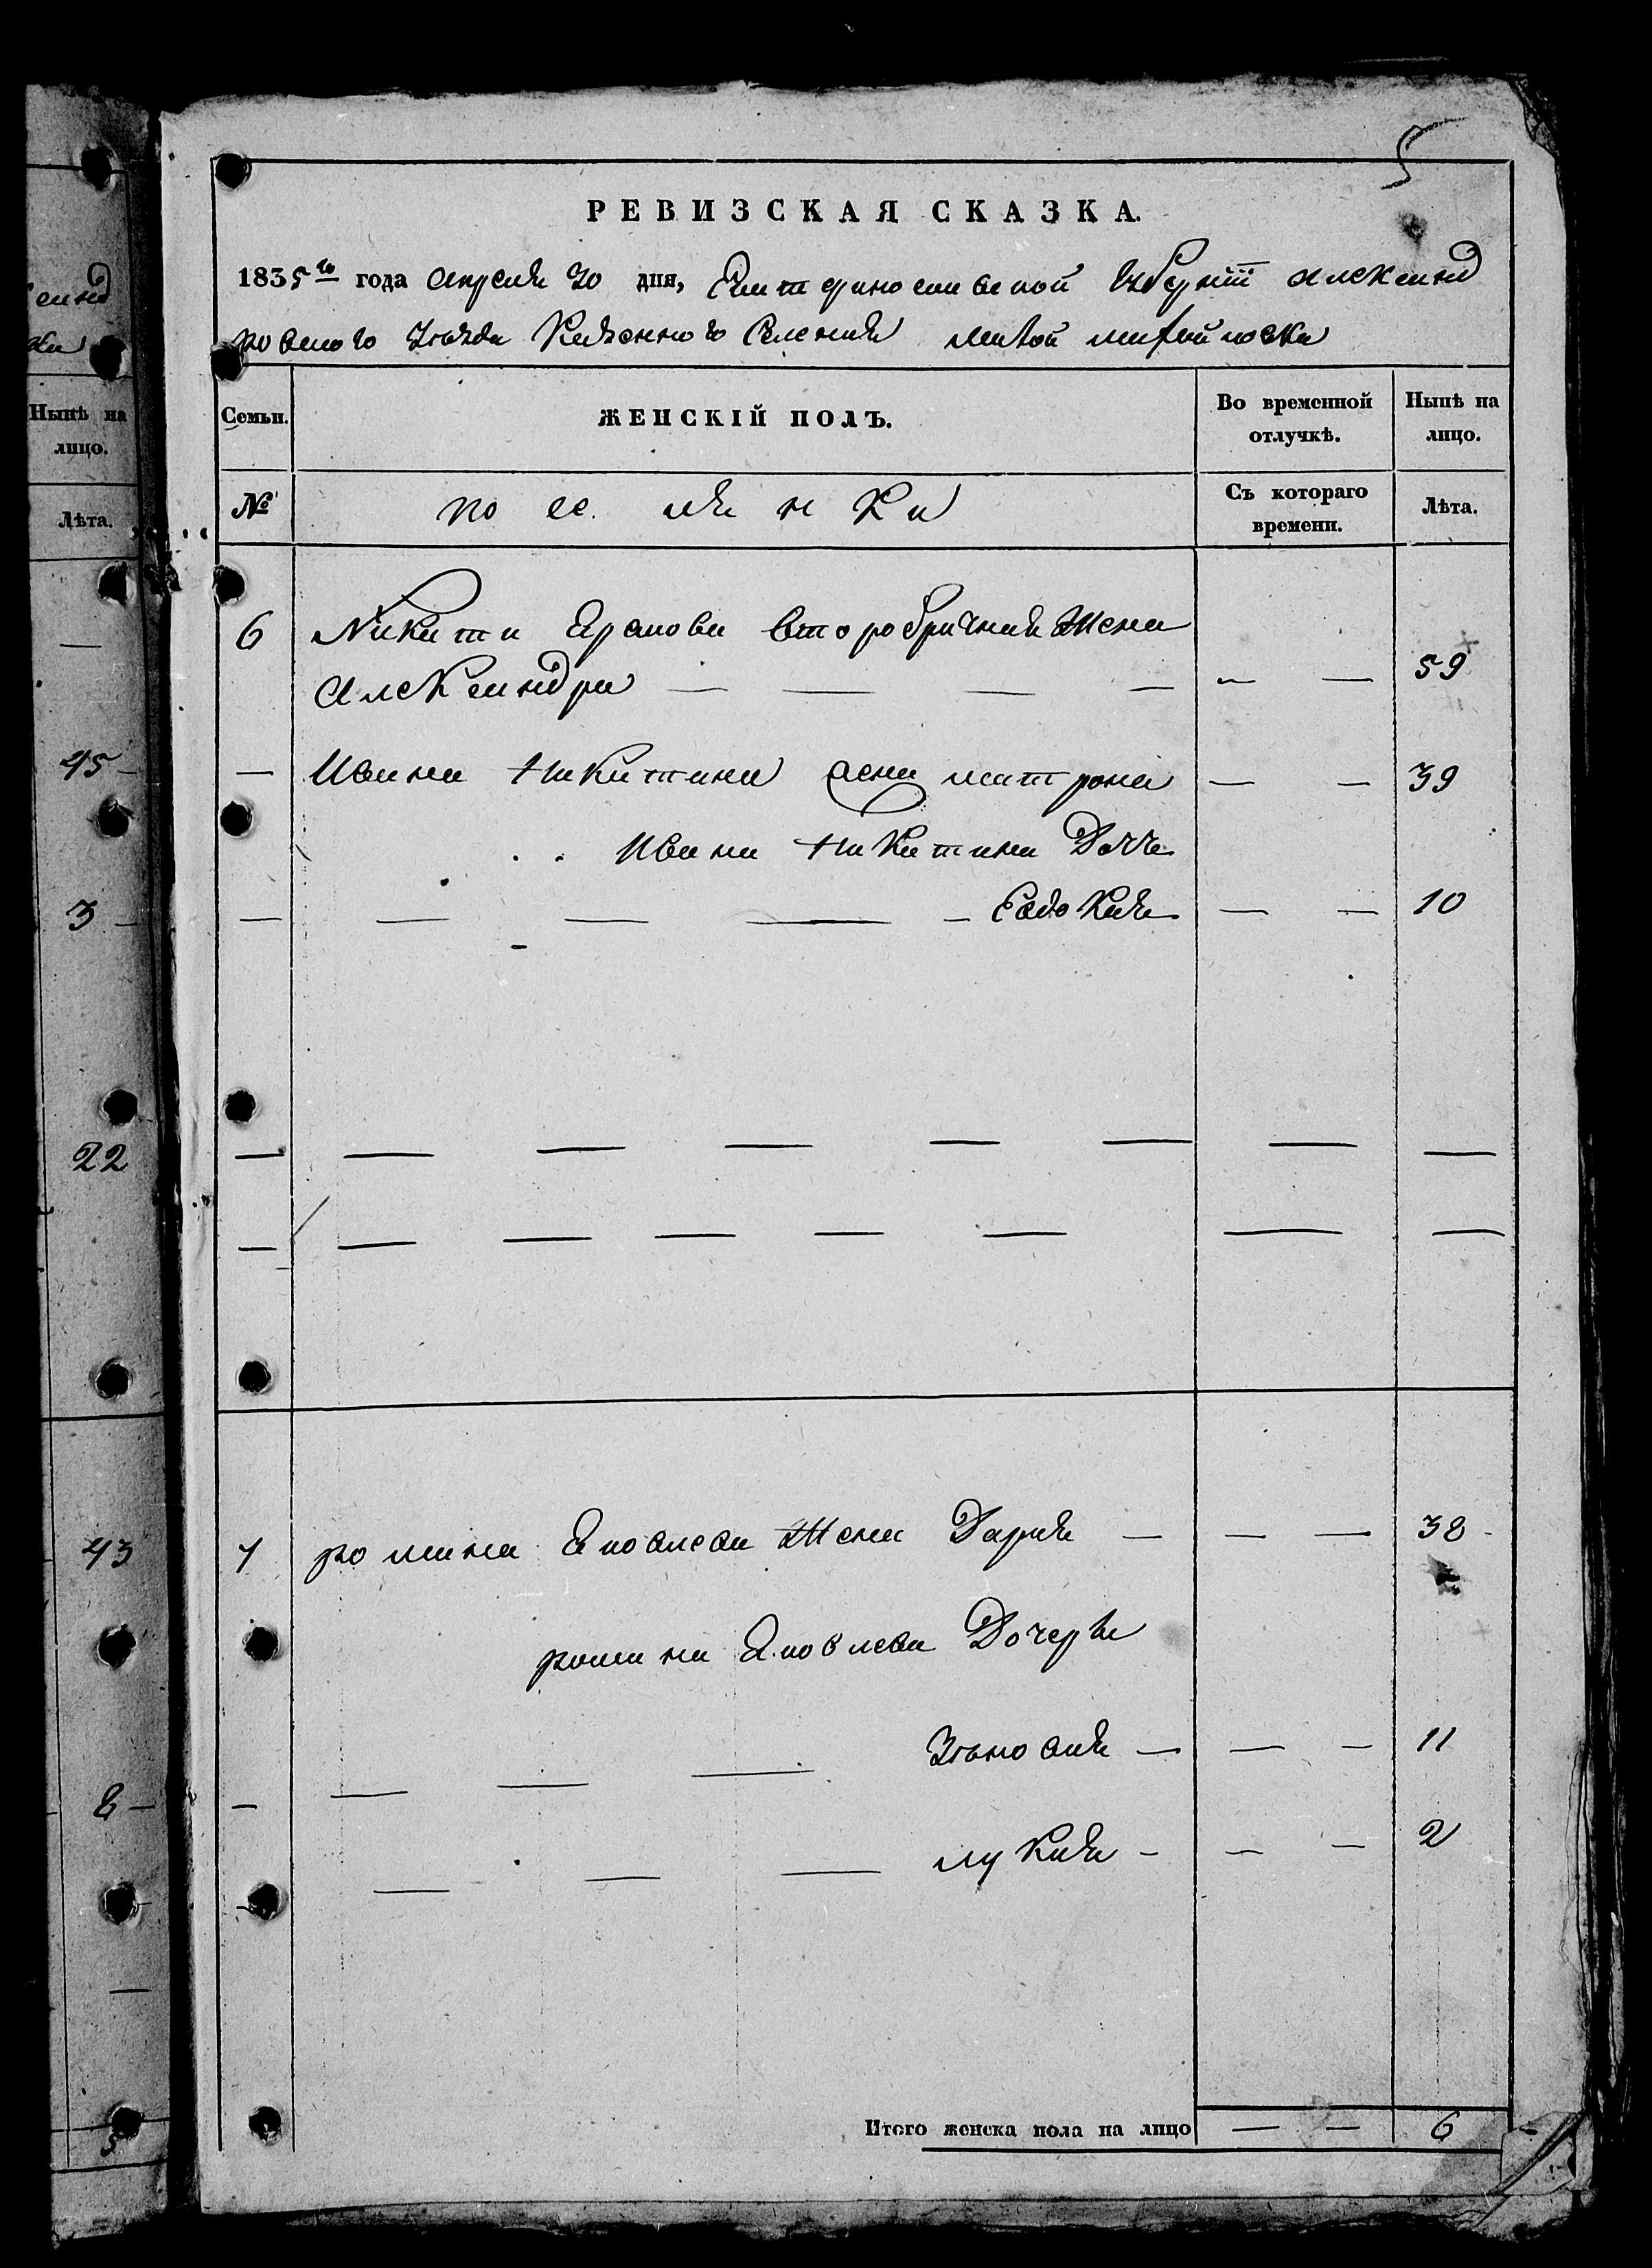 5
РЕВИЗСКАЯ СКАЗКА.
1835го года апреля 30 дня, Екатеринославской Губернїи Александ
ровского Уезда Казенного Селения Малой Михайловки
Семьи.
ЖЕНСКІЙ ПОЛЪ.
Во временной отлучкѣ.
Нынѣ на лицо.
№
поселянки
Съ котораго времени.
Лѣта.
6 Никиты второбрачная Жена
Александра — — — — — — 59
— Ивана Никитина жена матрона — — 39
Ивана Никитина Дочь
— — — — — Евдокия — — 10
— — — — — — — —
— — — — — — — —
7 романа Яковлева Жена Дария — — — 38
романа Яковлева Дочеры
— — — — — — — 11
— — — — лукия — — — 2
Итого женска пола на лицо — — 6
енд
ки
Нынѣ на
лицо.
Лѣта.
—
45 —
3 —
22
43
8 —
—
5